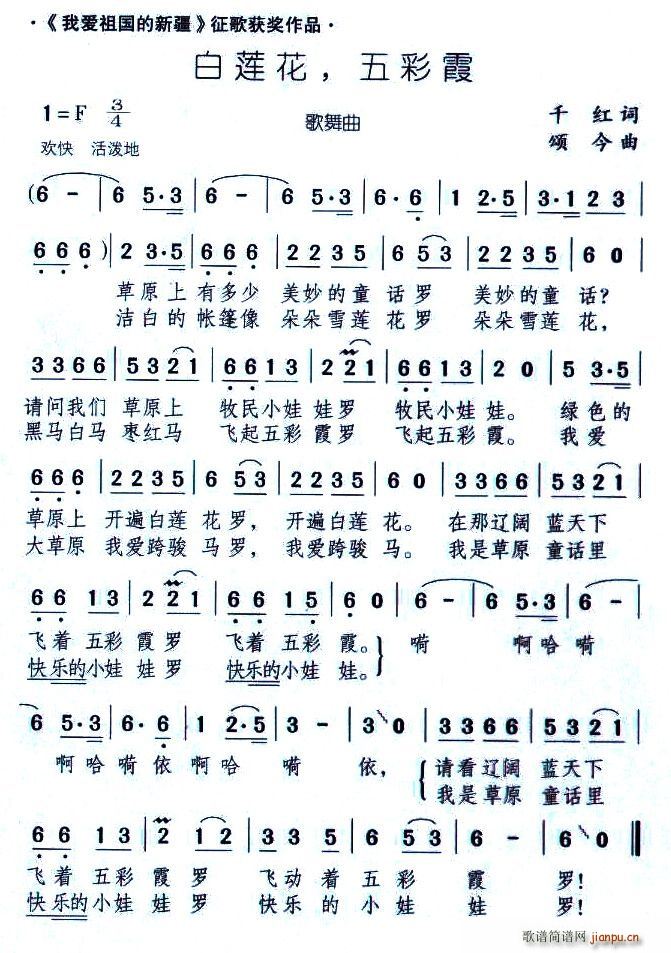 ·《我爱祖国的新疆》征歌获奖作品·
白莲花，五彩霞
1=F 3/4
歌舞曲
千红词
欢快 活泼地
颂今曲
(6 - | 6 5·3 | 6 - | 6 5·3 | 6·6 | 1 2·5 | 3·1 23 |
666) | 2 3·5 | 666 | 2235 | 6 53 | 2235 | 60 |
草原上有多少 美妙的童话罗 美妙的童话?
洁白的帐篷像 朵朵雪莲花罗 朵朵雪莲花,
3366 | 5321 | 6613 | 2 21 | 6613 | 20 | 5 3·5 |
请问我们 草原上 牧民小娃娃罗 牧民小娃娃。 绿色的
黑马白马 枣红马 飞起五彩霞罗 飞起五彩霞。 我爱
666 | 2235 | 6 53 | 2235 | 60 | 3366 | 5321 |
草原上 开遍白莲花罗, 开遍白莲花。 在那辽阔 蓝天下
大草原 我爱跨骏马罗, 我爱跨骏马。 我是草原 童话里
66 13 | 2 21 | 66 15 | 60 | 6 - | 6 5·3 | 6 - |
飞着五彩霞罗 飞着五彩霞。 嗬 啊哈嗬
快乐的小娃娃罗 快乐的小娃娃。
6 5·3 | 6·6 | 1 2·5 | 3 - | 30 | 3366 | 5321 |
啊哈嗬依啊哈嗬依, 请看辽阔 蓝天下
我是草原 童话里
66 13 | 2 12 | 3 53 | 6 53 | 2 12 | 6 - | 60 ‖
飞着五彩霞罗 飞动着五彩霞罗!
快乐的小娃娃罗 快乐的小娃娃罗!
歌谱简谱网
jianpu.cn